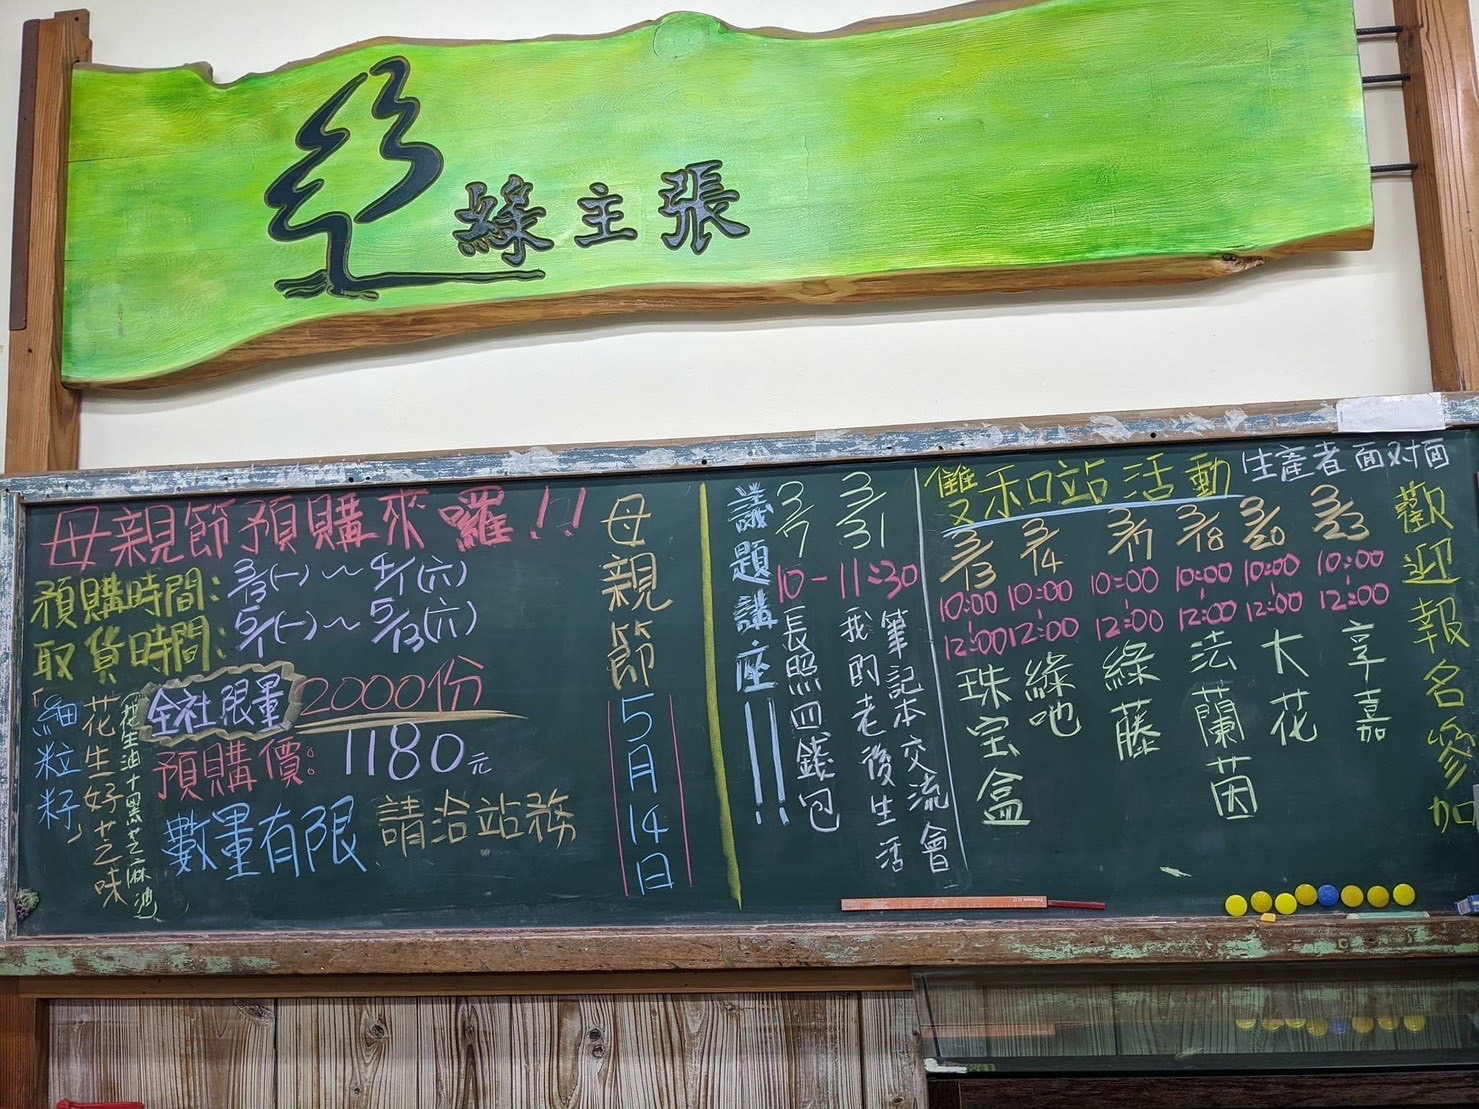 綠主張
母親節預購來囉!!
預購時間:3/13(一)~4/1(六)
取貨時間:5/1(一)~5/13(六)
全社限量 2000份
預購價:1180元
數量有限 請洽站務
「細粒籽」
花生好芝味
(花生油+黑芝麻油)
母親節
5月14日
議題講座!!
3/7
3/31
10-11:30
長照四錢包
我的老後生活
筆記本交流會
雙和站活動 生產者面對面
3/13 10:00-12:00 珠宝盒
3/14 10:00-12:00 綠吔
3/17 10:00-12:00 綠藤
3/18 10:00-12:00 法蘭茵
3/20 10:00-12:00 大花
3/23 10:00-12:00 享嘉
歡迎報名參加